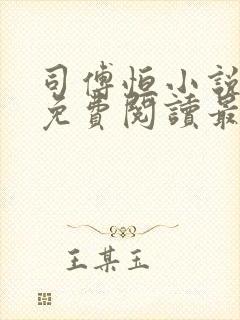 司傅恒小說
免費閱讀最
王某玉